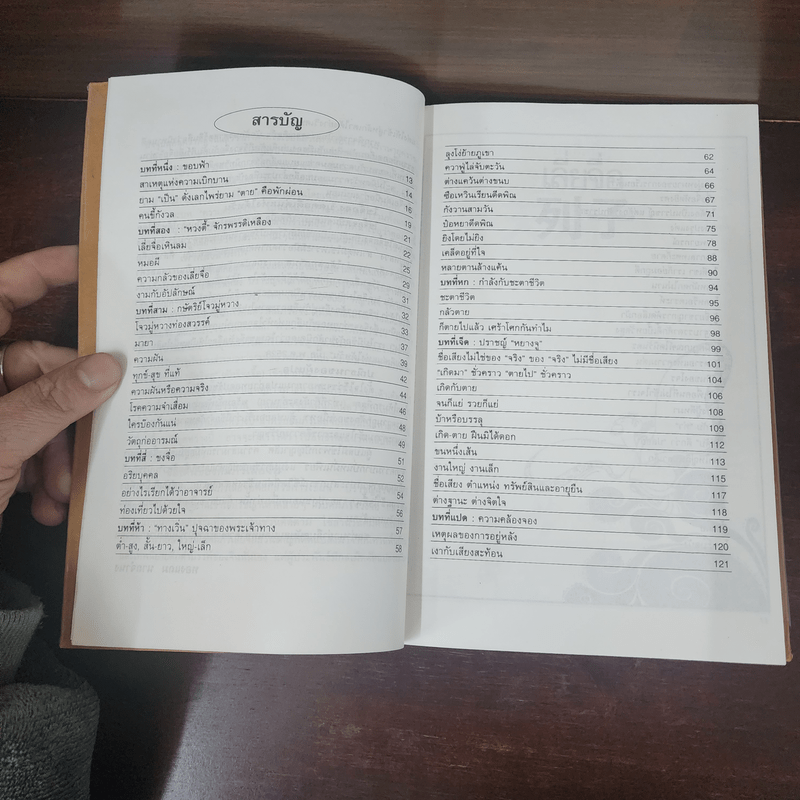 สารบัญ
บทที่หนึ่ง : ขอบฟ้า 13
สาเหตุแห่งความเบิกบาน 14
ยาม "เป็น" ดังเลกไพร่ยาม "ตาย" คือพักผ่อน 16
คนขี้กังวล 19
บทที่สอง : "หวงตี้" จักรพรรดิเหลือง 21
เลี่ยจื่อเหินลม 22
หมอผี 25
ความกลัวของเลี่ยจื่อ 29
งามกับอัปลักษณ์ 31
บทที่สาม : กษัตริย์โจวมู่หวาง 32
โจวมู่หวางท่องสวรรค์ 33
มายา 37
ความฝัน 39
ทุกข์-สุข ที่แท้ 42
ความฝันหรือความจริง 44
โรคความจำเสื่อม 46
ใครบ้องกันแน่ 48
วัตถุก่ออารมณ์ 49
บทที่สี่ : ชงจื่อ 51
อริยบุคคล 52
อย่างไรเรียกได้ว่าอาจารย์ 54
ท่องเที่ยวไปด้วยใจ 56
บทที่ห้า : "ทางเวิ่น" ปุจฉาของพระเจ้าทาง 57
ต่ำ-สูง, สั้น-ยาว, ใหญ่-เล็ก 58
ลุงโง่ย้ายภูเขา 62
ควาฟู่ไล่จับตะวัน 64
ต่างแคว้นต่างขนบ 66
ซือเหวินเรียนดีดพิณ 67
กังวานสามวัน 71
ป๋อหยาดีดพิณ 75
ยิงโดยไม่ยิง 78
เคล็ดอยู่ที่ใจ 88
หลายตานล้างแค้น 90
บทที่หก : กำลังกับชะตาชีวิต 94
ชะตาชีวิต 95
กลัวตาย 96
ก็ตายไปแล้ว เศร้าโศกกันทำไม 98
บทที่เจ็ด : ปราชญ์ "หยางจู" 99
ชื่อเสียงไม่ใช่ของ "จริง" ของ "จริง" ไม่มีชื่อเสียง 101
"เกิดมา" ชั่วคราว "ตายไป" ชั่วคราว 104
เกิดกับตาย 106
จนก็แย่ รวยก็แย่ 108
บ้าหรือบรรลุ 109
เกิด-ตาย ฝืนมิได้ดอก 112
ขนหนึ่งเส้น 113
งานใหญ่ งานเล็ก 115
ชื่อเสียง ตำแหน่ง ทรัพย์สินและอายุยืน 117
ต่างฐานะ ต่างจิตใจ 118
บทที่แปด : ความคล้องจอง 119
เหตุผลของการอยู่หลัง 120
เงากับเสียงสะท้อน 121